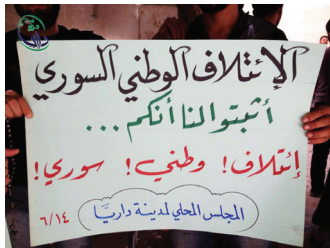 الإئتلاف الوطني السوري
أثبتوا لنا أنكم...
إئتلاف! وطني! سوري!
المجلس المحلي لمدينة داريّا
٦/١٤